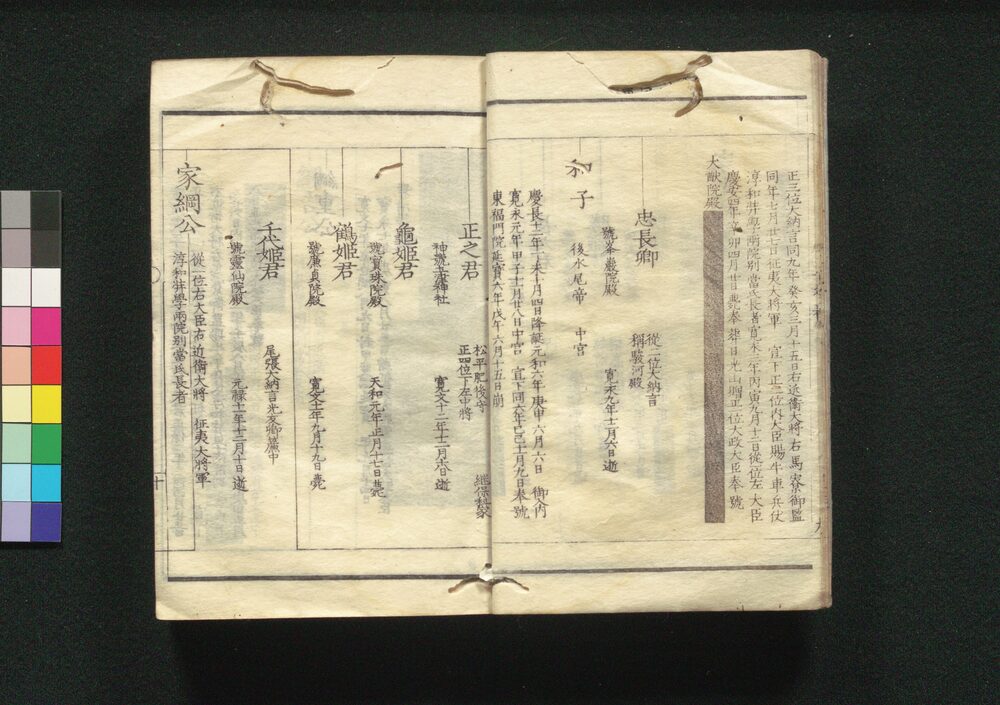 正三位大納言同九年癸亥三月十五日右近衛大将右馬寮御監
同年七月廿七日征夷大将軍 宣下正二位内大臣賜牛車兵仗
淳和弉學兩院別當氏長者寛永三年丙寅九月十三日從一位左大臣
慶安四年辛卯四月廿日薨奉葬日光山贈正一位大政大臣奉號
大猷院殿
忠長卿
從二位大納言
稱駿河殿
號峯巖院殿 寛永九年十二月六日逝
和子
後水尾帝 中宮
慶長十二年丁未十月四日降誕元和六年庚申六月六日 御入内
寛永元年甲子十一月廿八日中宮 宣下同六年己巳十一月九日奉號
東福門院延寶六年戊午六月十五日崩
正之君
松平肥後守
正四位下左中将
繼保科家
神號土津神社 寛文十二年十二月十八日逝
龜姫君
號寳珠院殿 天和元年正月十七日薨
鶴姫君
號廉貞院殿 寛文十一年九月十九日薨
千代姫君
尾張大納言光友卿簾中
號靈仙院殿 元禄十一年十二月十日逝
家綱公
從一位右大臣右近衛大将 征夷大将軍
淳和弉學兩院別當氏長者
十
九